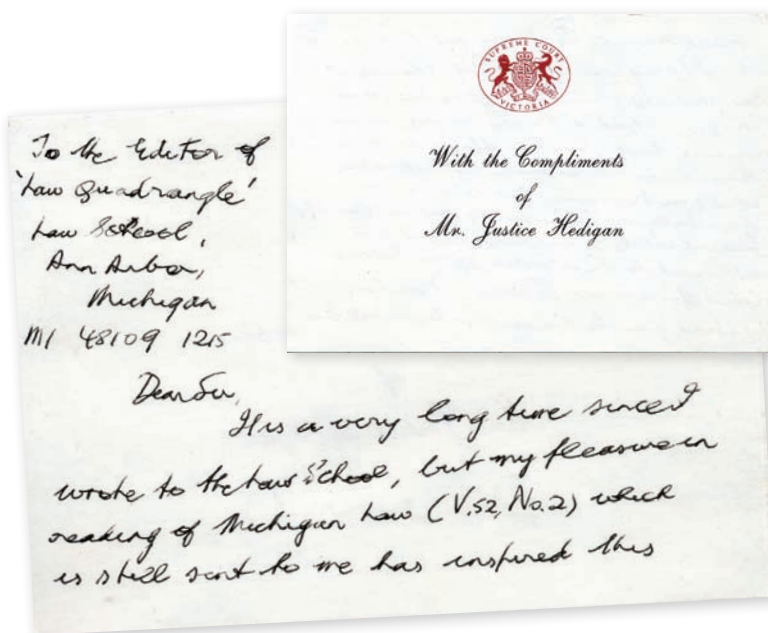 SUPREME COURT
VICTORIA
With the Compliments
of
Mr. Justice Hedigan
To the Editor of
'Law Quadrangle'
Law School,
Ann Arbor,
Michigan
MI 48109 1215
Dear Sir,
It is a very long time since I
wrote to the Law School, but my pleasure in
reading of Michigan Law (V.52, No.2) which
is still sent to me has inspired this